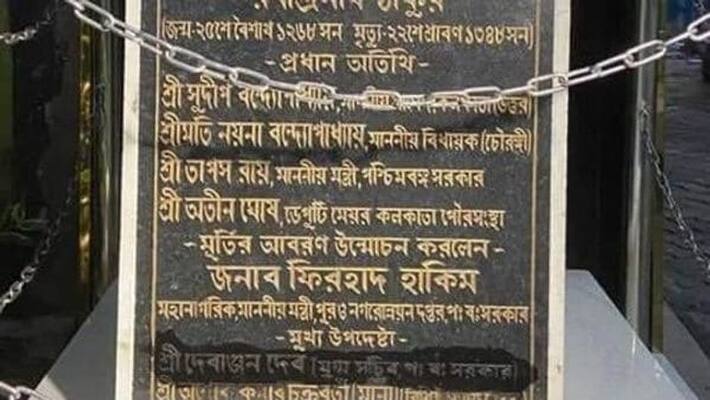 রবীন্দ্রনাথ ঠাকুর
(জন্ম-২৫শে বৈশাখ ১২৬৮ সন মৃত্যু-২২শে শ্রাবণ ১৩৪৮ সন)
-প্রধান অতিথি-
শ্রী সুদীপ বন্দ্যোপাধ্যায়,
শ্রীমতি নয়না বন্দ্যোপাধ্যায়, মাননীয় বিধায়ক (চৌরঙ্গী)
শ্রী তাপস রায়, মাননীয় মন্ত্রী, পশ্চিমবঙ্গ সরকার
শ্রী অতীন ঘোষ, ডেপুটি মেয়র কলকাতা পৌরসংস্থা
-মূর্তির আবরণ উন্মোচন করলেন-
জনাব ফিরহাদ হাকিম
মহানাগরিক, মাননীয় মন্ত্রী, পুর ও নগরোন্নয়ন দপ্তর, পঃ বঃ সরকার
-মুখ্য উপদেষ্টা-
শ্রী দেবাঞ্জন দেব (মুখ্য সচিব পঃ বঃ সরকার)